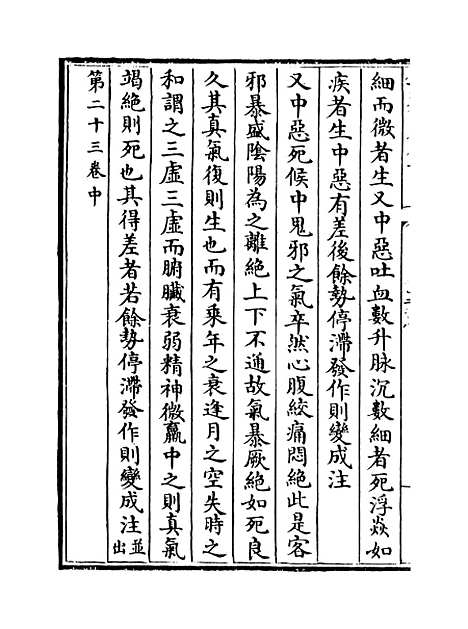 細而微者生又中惡吐血數升脉沉數細者死浮焱如
疾者生中惡有差後餘勢停滯發作則變成注
又中惡死候中鬼邪之氣卒然心腹絞痛悶絶此是客
邪暴盛隂陽為之離絶上下不通故氣暴厥絶如死良
久其真氣復則生也而有乗年之衰逢月之空失時之
和謂之三虛三虛而腑臟衰弱精神微羸中之則真氣
竭絶則死也其得差者若餘勢停滯發作則變成注並出
第二十三卷中